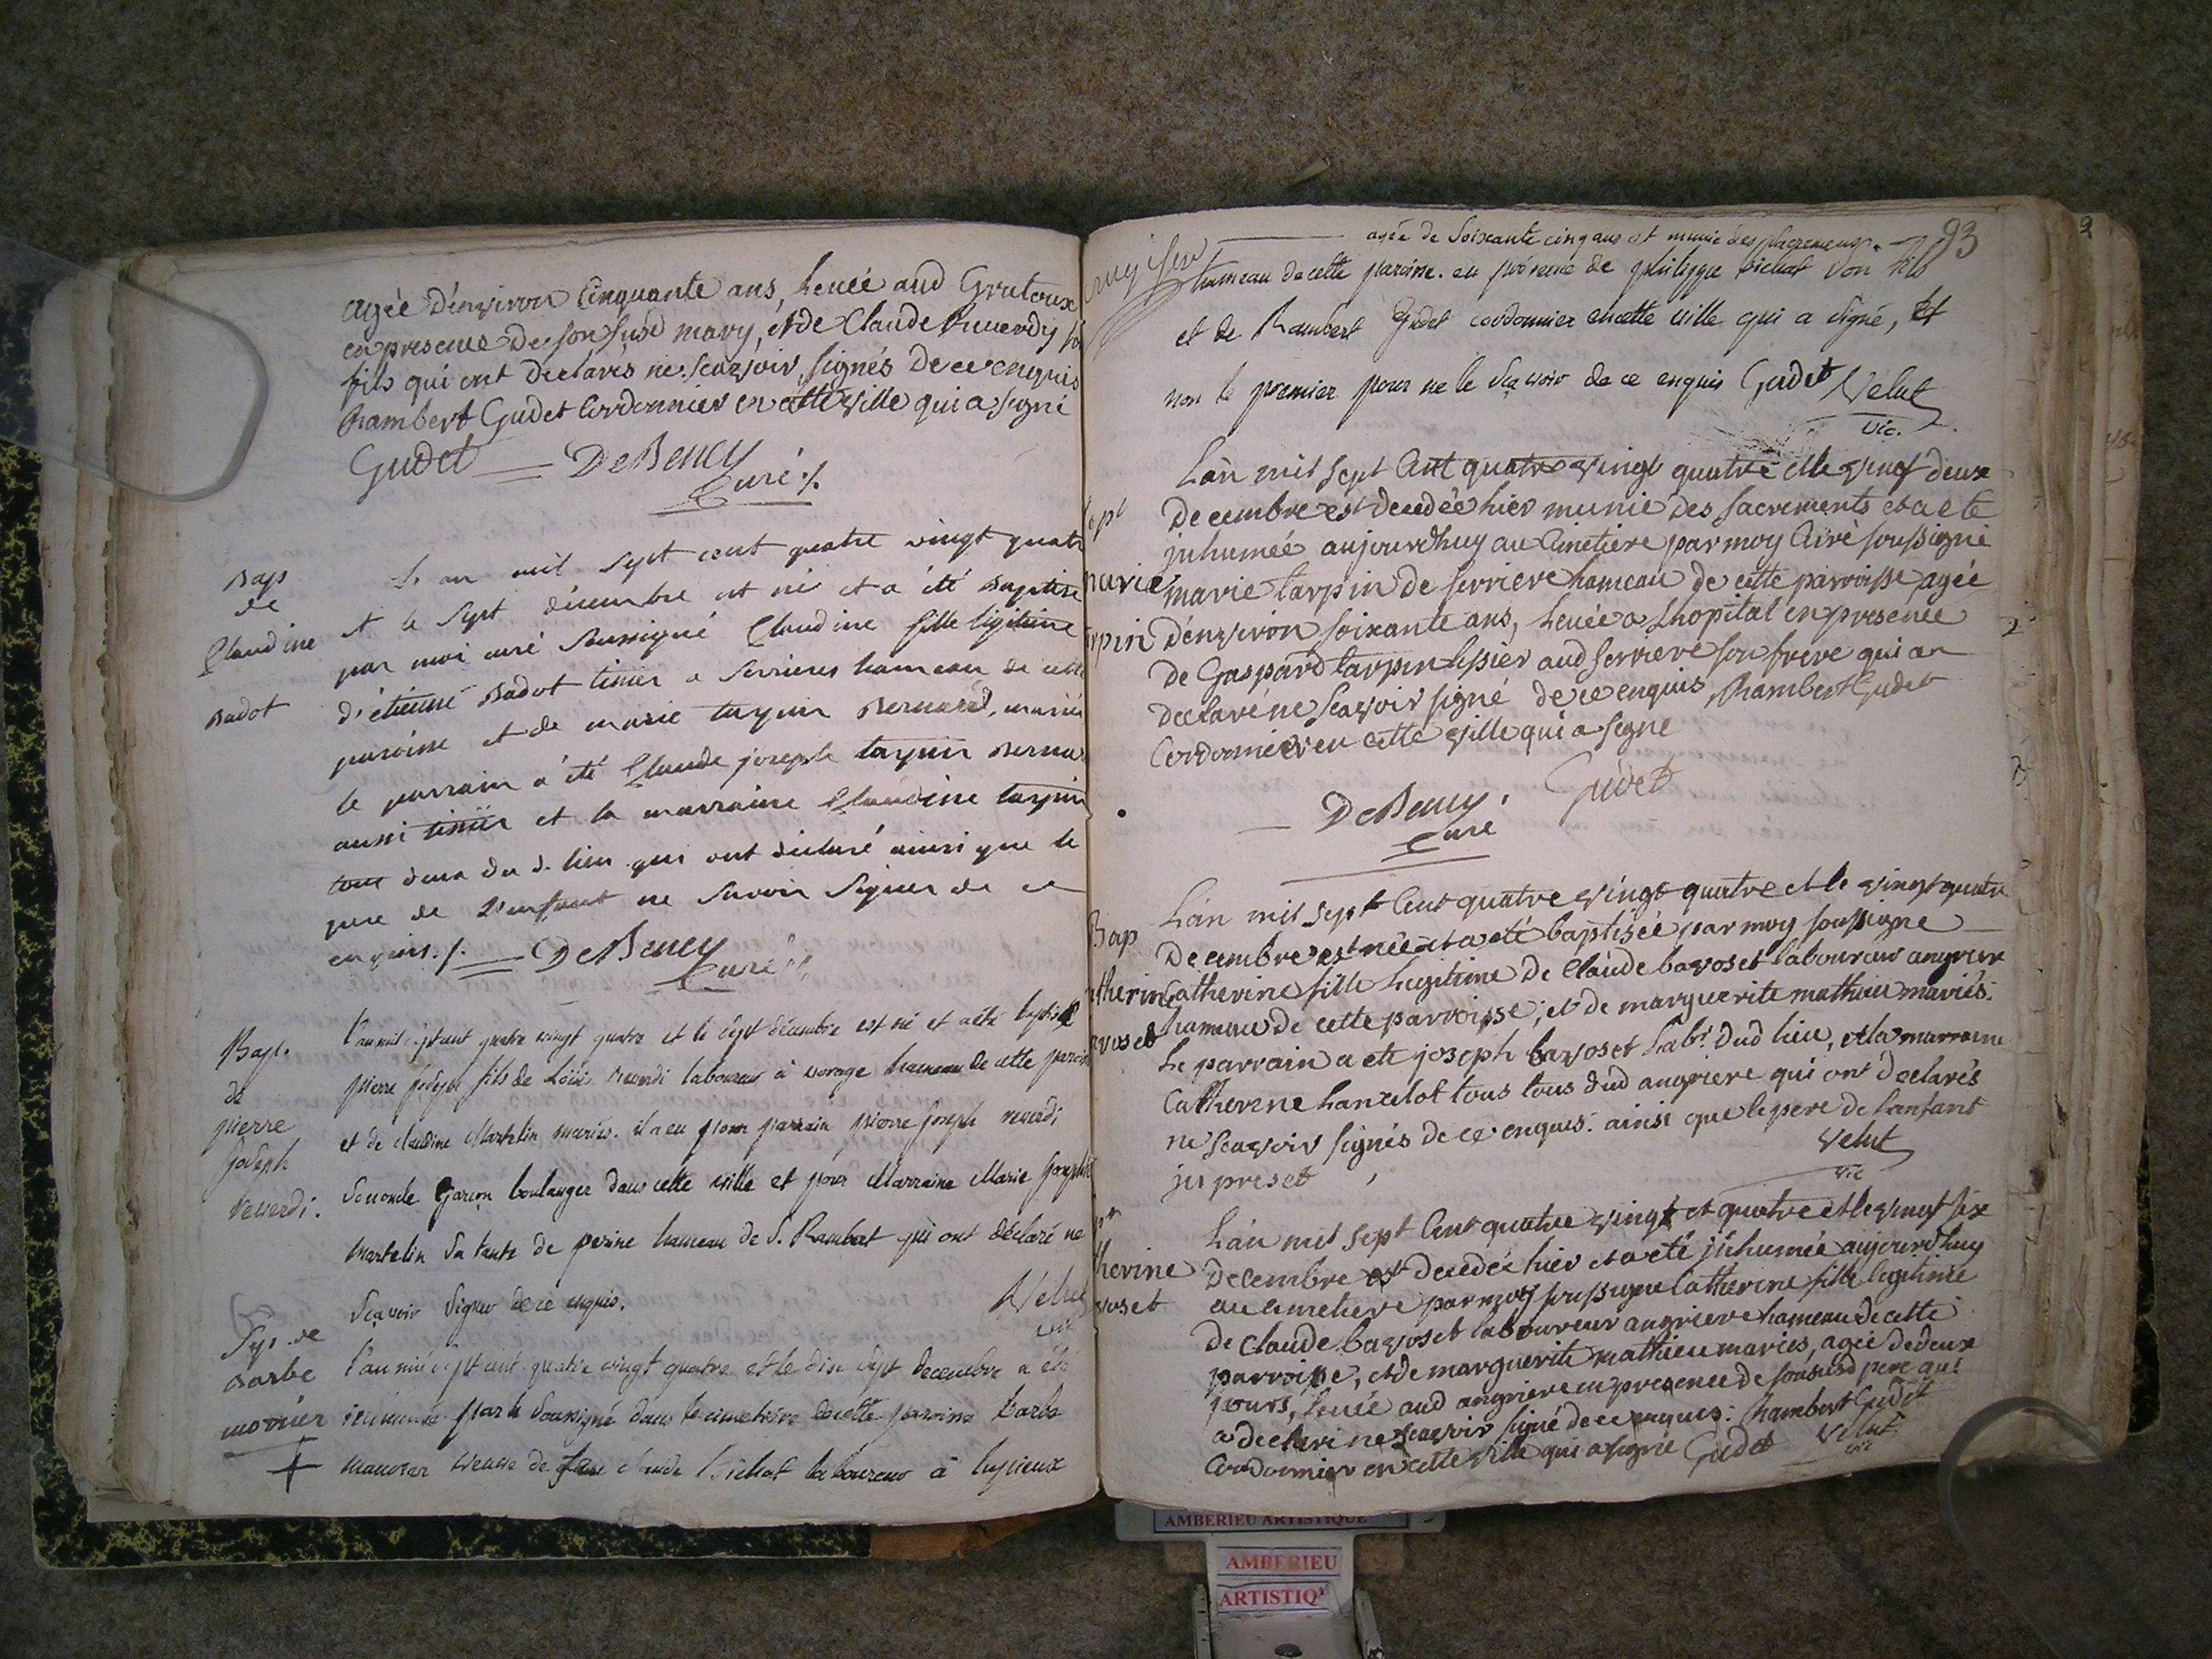 agée d'environ Cinquante ans, levée aud Grutoux
en presence de son susd mary, et de Claude
fils qui ont declarés ne scavoir signés de ce enquis
Rambert Gudet Cordonnier en cette ville qui a signé
Gudet DeBeney
Curé ./.
Bap
de
Claudine
Badot
L'an mil sept cent quatre vingt quatre
et le sept décembre est né et a été Baptisé
par moi curé soussigné Claudine fille légitime
d'étienne Badot tissier a serrieres hameau de cette
paroisse et de marie tarpin Bernard, mariés
le parrain a été Claude joseph tarpin Bernard
aussi tissier et la marraine Claudine tarpin
tous deux du d. lieu qui ont déclaré ainsi que le
pere de l'enfant ne savoir signer de ce
enquis ./. DeBeney
Curé
Bapt.
de
pierre
joseph
reverdi.
l'an mil sept cent quatre vingt quatre et le sept décembre est né et a été baptisé
pierre joseph fils de Loüis reverdi laboureur à vorage hameau de cette paroisse
et de claudine Martelin mariés. il a eu pour parrain pierre joseph reverdi
son oncle garçon boulanger dans cette ville et pour Marraine Marie josephe
Martelin sa tante de perine hameau de S. Rambert qui ont déclaré ne
sçavoir signer de ce enquis.
Velut
vic
Sep. de
Barbe
movier
l'an mil sept cent quatre vingt quatre et le dix sept decembre a été
inhumée par le soussigné dans le cimetière de cette paroisse Barbe
veuve de feu claude Bichat laboureur à lupieux
93
agée de soixante cinq ans et munie des sacremens.
hameau de cette paroisse. en présence de philippe Bichat son fils
et de Rambert Gudet cordonnier en cette ville qui a signé, et
non le premier pour ne le sçavoir de ce enquis Gudet Velut
vic.
marie
L'an mil sept Cent quatre vingt quatre et le vingt deux
Decembre est decedée hier munie des sacrements et a ete
inhumée aujourdhuy au Cimetiere par moy Curé soussigné
marie tarpin de serriere hameau de cette parroisse agée
d'environ soixante ans, levée a l'hopital en presence
de Gaspard tarpin tissier aud serriere son frere qui a
declaré ne scavoir signé de ce enquis, Rambert Gudet
Cordonnier en cette ville qui a signé
DeBeney Gudet
Curé
Bap
L'an mil sept Cent quatre vingt quatre et le vingt quatre
Decembre est née et a eté baptisée par moy soussigné
Catherine fille legitime de Claude bavoset laboureur angriere
hameau de cette parroisse, et de marguerite mathieu mariés.
Le parrain a ete joseph bavoset Labr. dud lieu, et la marraine
Catherine Lancelot tous tous dud angriere qui ont declarés
ne scavoir signés de ce enquis. ainsi que le pere de l'enfant
Velut
vic
L'an mil sept Cent quatre vingt et quatre et le vingt six
Decembre est decedée hier et a eté inhumée aujourdhuy
au cimetiere par moy soussigné Catherine fille legitime
de Claude bavoset laboureur angriere hameau de cette
parroisse, et de marguerite mathieu mariés, agée de deux
jours, levée aud angriere en presence de son susd pere qui
a declaré ne scavoir signé de ce enquis. Rambert Gudet
Cordonnier en cette ville qui a signé Gudet Velut
vic
AMBERIEU ARTISTIQUE
AMBERIEU
ARTISTIQ